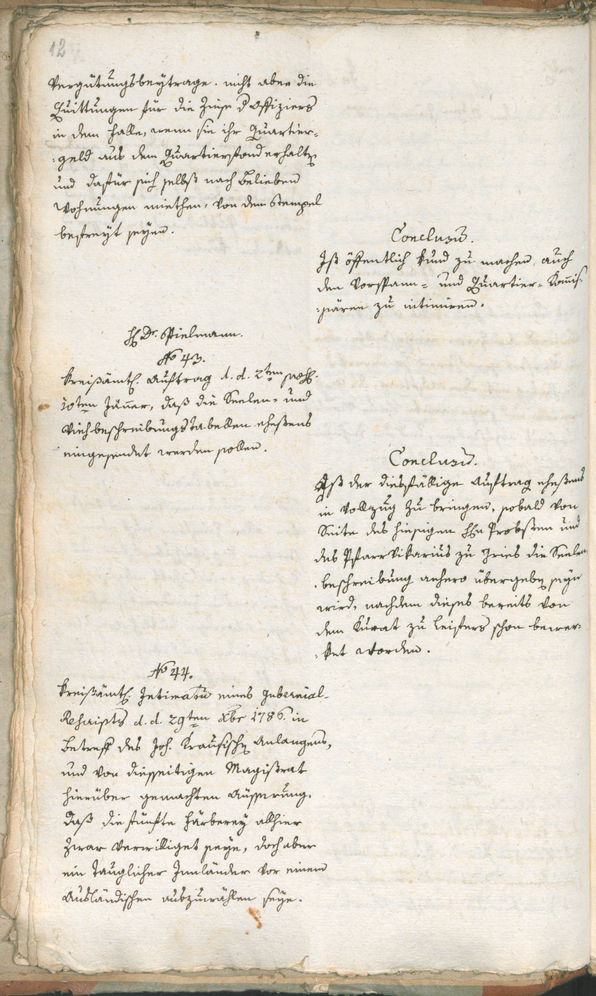 12
Vergütungsbeytrage. nicht aber die
Quittungen für die Zinse d Offiziers
in dem Falle, wenn sie ihr Quartier-
:geld aus dem Quartiersfond erhalten
und dafür sich selbst nach Belieben
Wohnungen miethen, von dem Stempel
befreyt seyen.
Conclusum.
Ist öffentlich kund zu machen, auch
den Vorspann- und Quartier-Kommis-
:sären zu intimiren.
H Dr. Spielmann.
No 43.
Kreisämtl. Auftrag d. d. 2ten
10ten Jäner, daß die Seelen- und
Viehbeschreibungstabellen ehestens
eingesendet werden sollen.
Conclusum.
Ist der diesfällige Auftrag ehestens
in Vollzug zu bringen, sobald von
Seite des hiesigen Hn Probsten und
des Pfarrvikarius zu Gries die Seelen
:beschreibung anhero übergeben seyn
wird, nachdem dieses bereits von
dem Kurat zu Leifers schon bewer-
:ket worden.
No 44.
Kreisämtl. Intimatum eines Gubernial-
Rescripts d. d. 29ten Xbr 1786. in
Betreff des Joh. Krausischen Anlangens,
und von diesseitigen Magistrat
hierüber gemachten Äusserung.
Daß die fünfte Färberey allhier
zwar verwilliget seye, doch aber
ein tauglicher Innländer vor einem
Ausländischen auszuwählen seye.